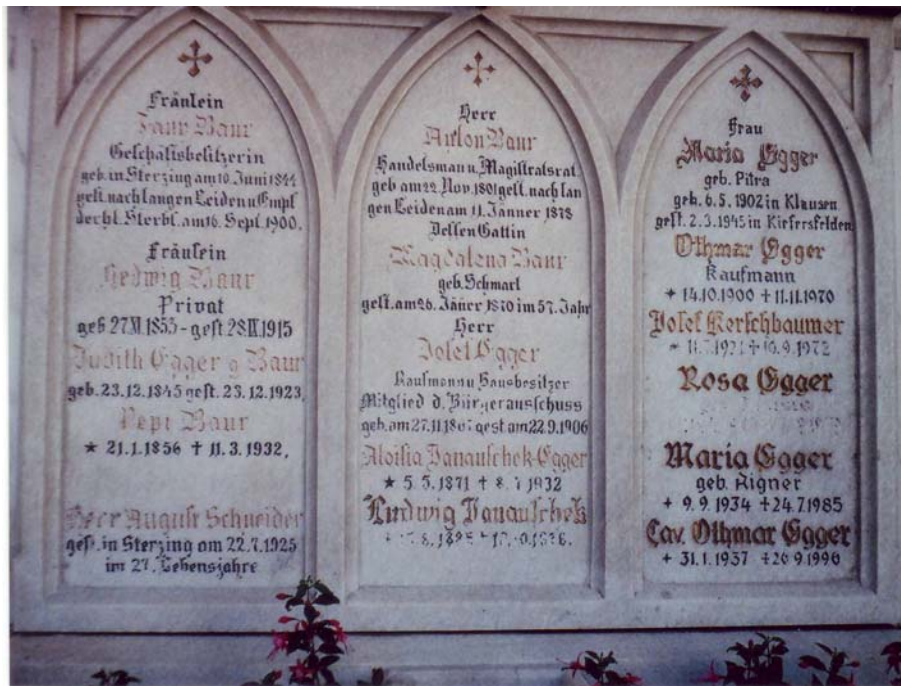 Fräulein
Fany Baur
Geschäftsbesitzerin
geb. in Sterzing am 10. Juni 1844
gest. nach langen Leiden u. Empf.
der hl. Sterbs. am 16. Sept. 1900.
Fräulein
Hedwig Baur
Privat
geb 27.XI.1853 - gest 28. 1915
Judith Egger g Baur
geb. 23.12.1845 gest. 23.12.1923.
Pepi Baur
* 21.1.1856 † 11.3.1932.
Herr August Schneider
gest. in Sterzing am 22.7.1925
im 27. Lebensjahre
Herr
Anton Baur
Handelsman u. Magistratsrat
geb am 22. Nov. 1801 gest. nach lan
gen Leiden am 11. Jänner 1878
Dessen Gattin
Magdalena Baur
geb. Schmarl
gest. am 26. Jäner 1870 im 57. Jahr
Herr
Josef Egger
Kaufmann u Hausbesitzer
Mitglied d. Bürgerausschuss
geb. am 27.11.1867 gest am 22.9.1906
Aloisia Janauschek-Egger
* 5.5.1871 † 8.7.1932
Ludwig Janauschek
Frau
Maria Egger
geb. Pitra
geb. 6.5.1902 in Klausen
gest. 2.3.1945 in Kiefersfelden
Othmar Egger
Kaufmann
* 14.10.1900 † 11.11.1970
Josef Kerschbaumer
Rosa Egger
Maria Egger
geb. Aigner
+ 9.9.1934 † 24.7.1985
Cav. Othmar Egger
+ 31.1.1937 † 26.9.1996